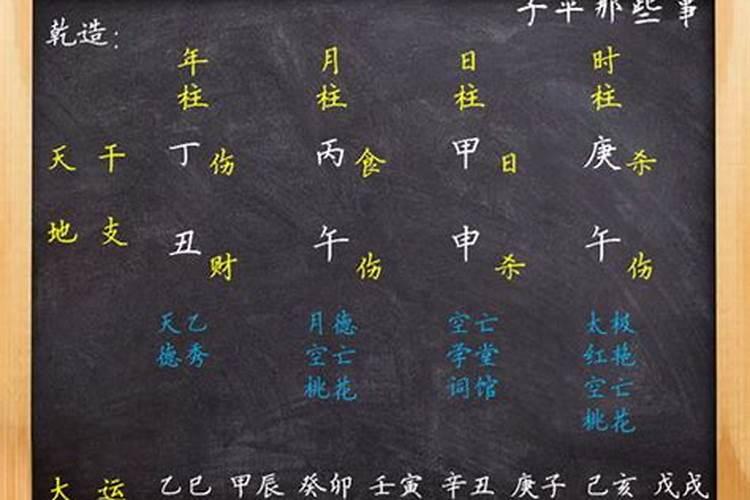 子平那些事
乾造：
年 月 日 时
柱 柱 柱 柱
天干 丁伤 丙食 甲日 庚杀
地支 丑财 午伤 申杀 午伤
天乙 月德 空亡 太极
德秀 空亡 学堂 红艳
桃花 词馆 空亡
桃花
大运 乙巳 甲辰 癸卯 壬寅 辛丑 庚子 己亥 戊戌